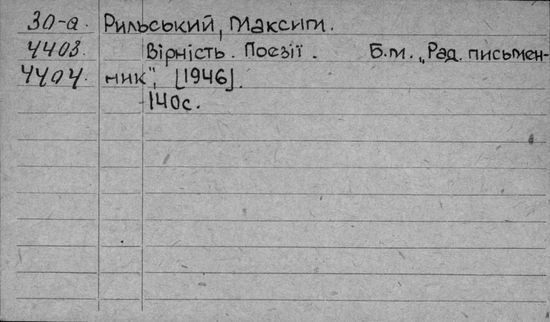 30-а. Рильський, Максим.
4403. Вірність. Поезії. Б.м. „Рад. письмен-
4404. ник", [1946].
140с.